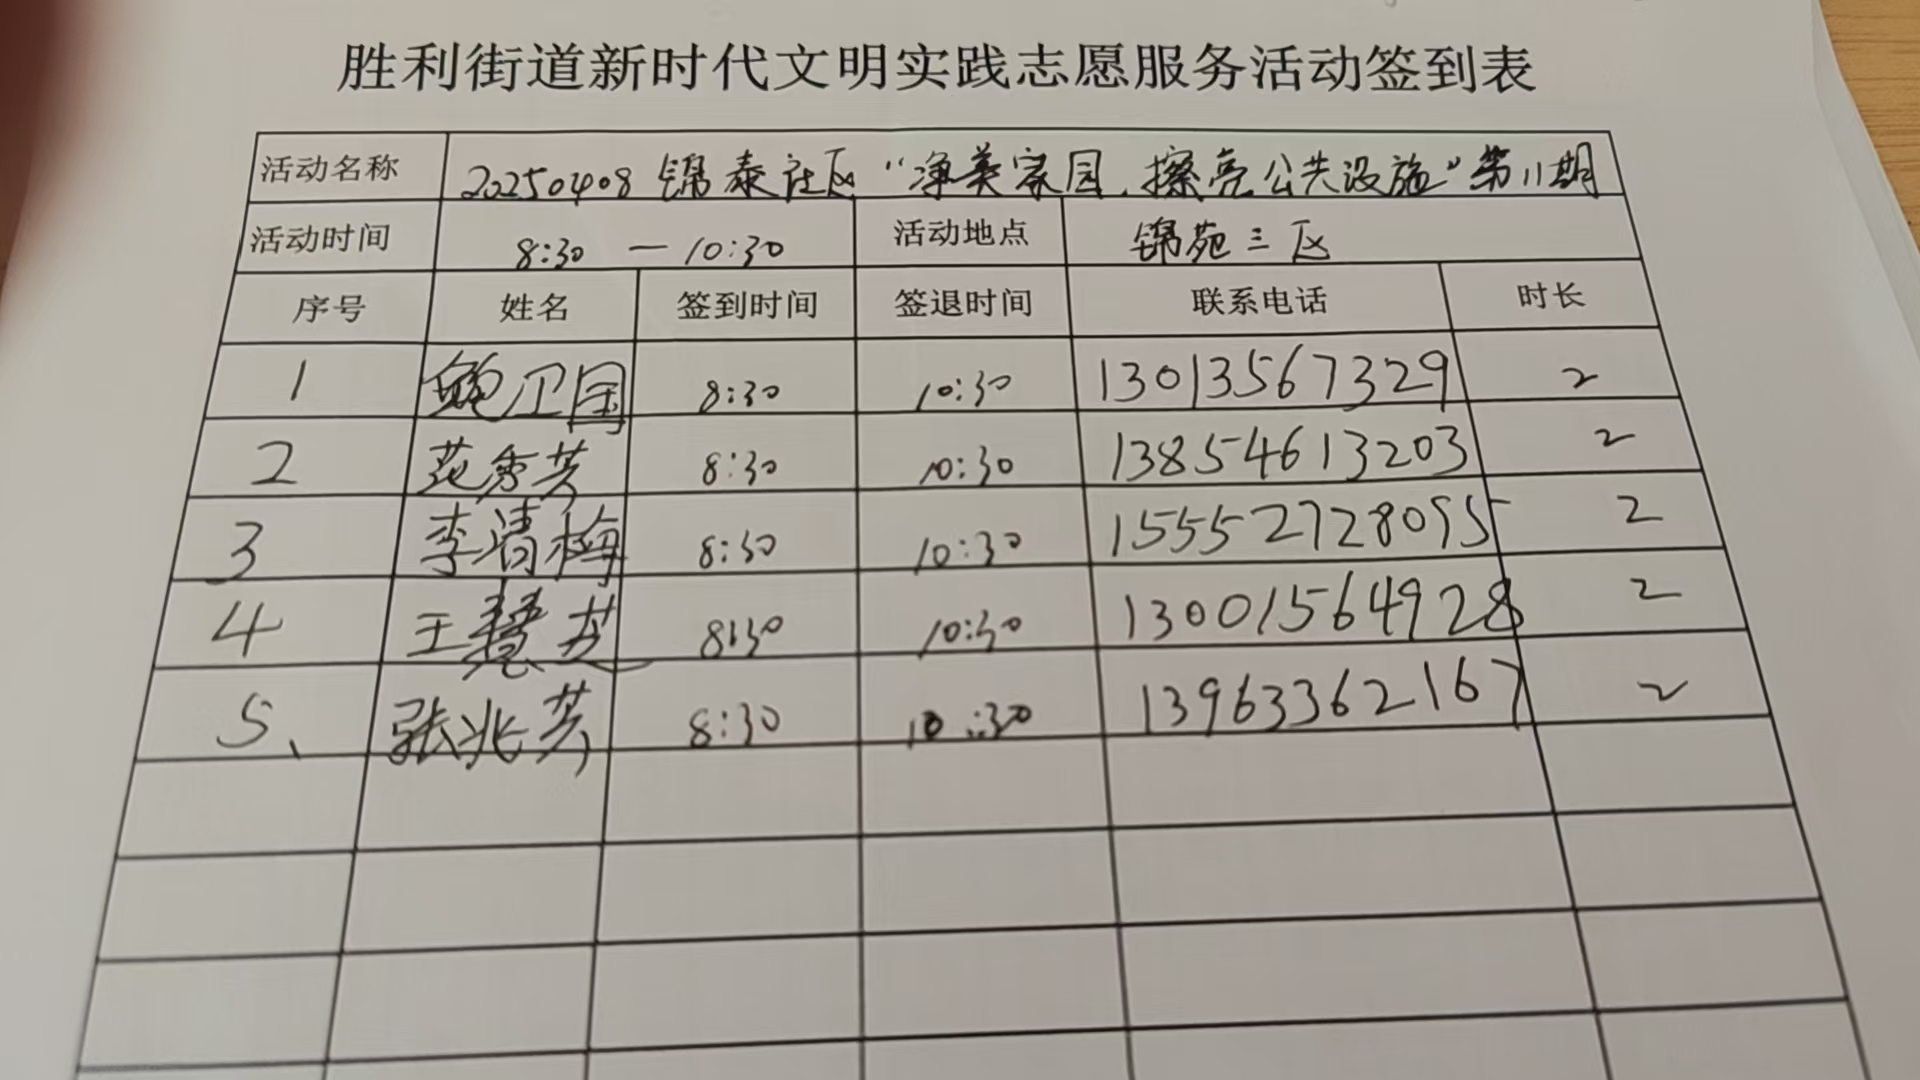 胜利街道新时代文明实践志愿服务活动签到表
活动名称 20250408 锦泰社区“净美家园、擦亮公共设施”第11期
活动时间 8:30 — 10:30 活动地点 锦苑三区
序号 姓名 签到时间 签退时间 联系电话 时长
1 鲍卫国 8:30 10:30 13013567329 2
2 范秀芳 8:30 10:30 13854613203 2
3 李清梅 8:30 10:30 15552728095 2
4 王慧芝 8:30 10:30 13001564928 2
5、 张兆芸 8:30 10:30 13963362167 2